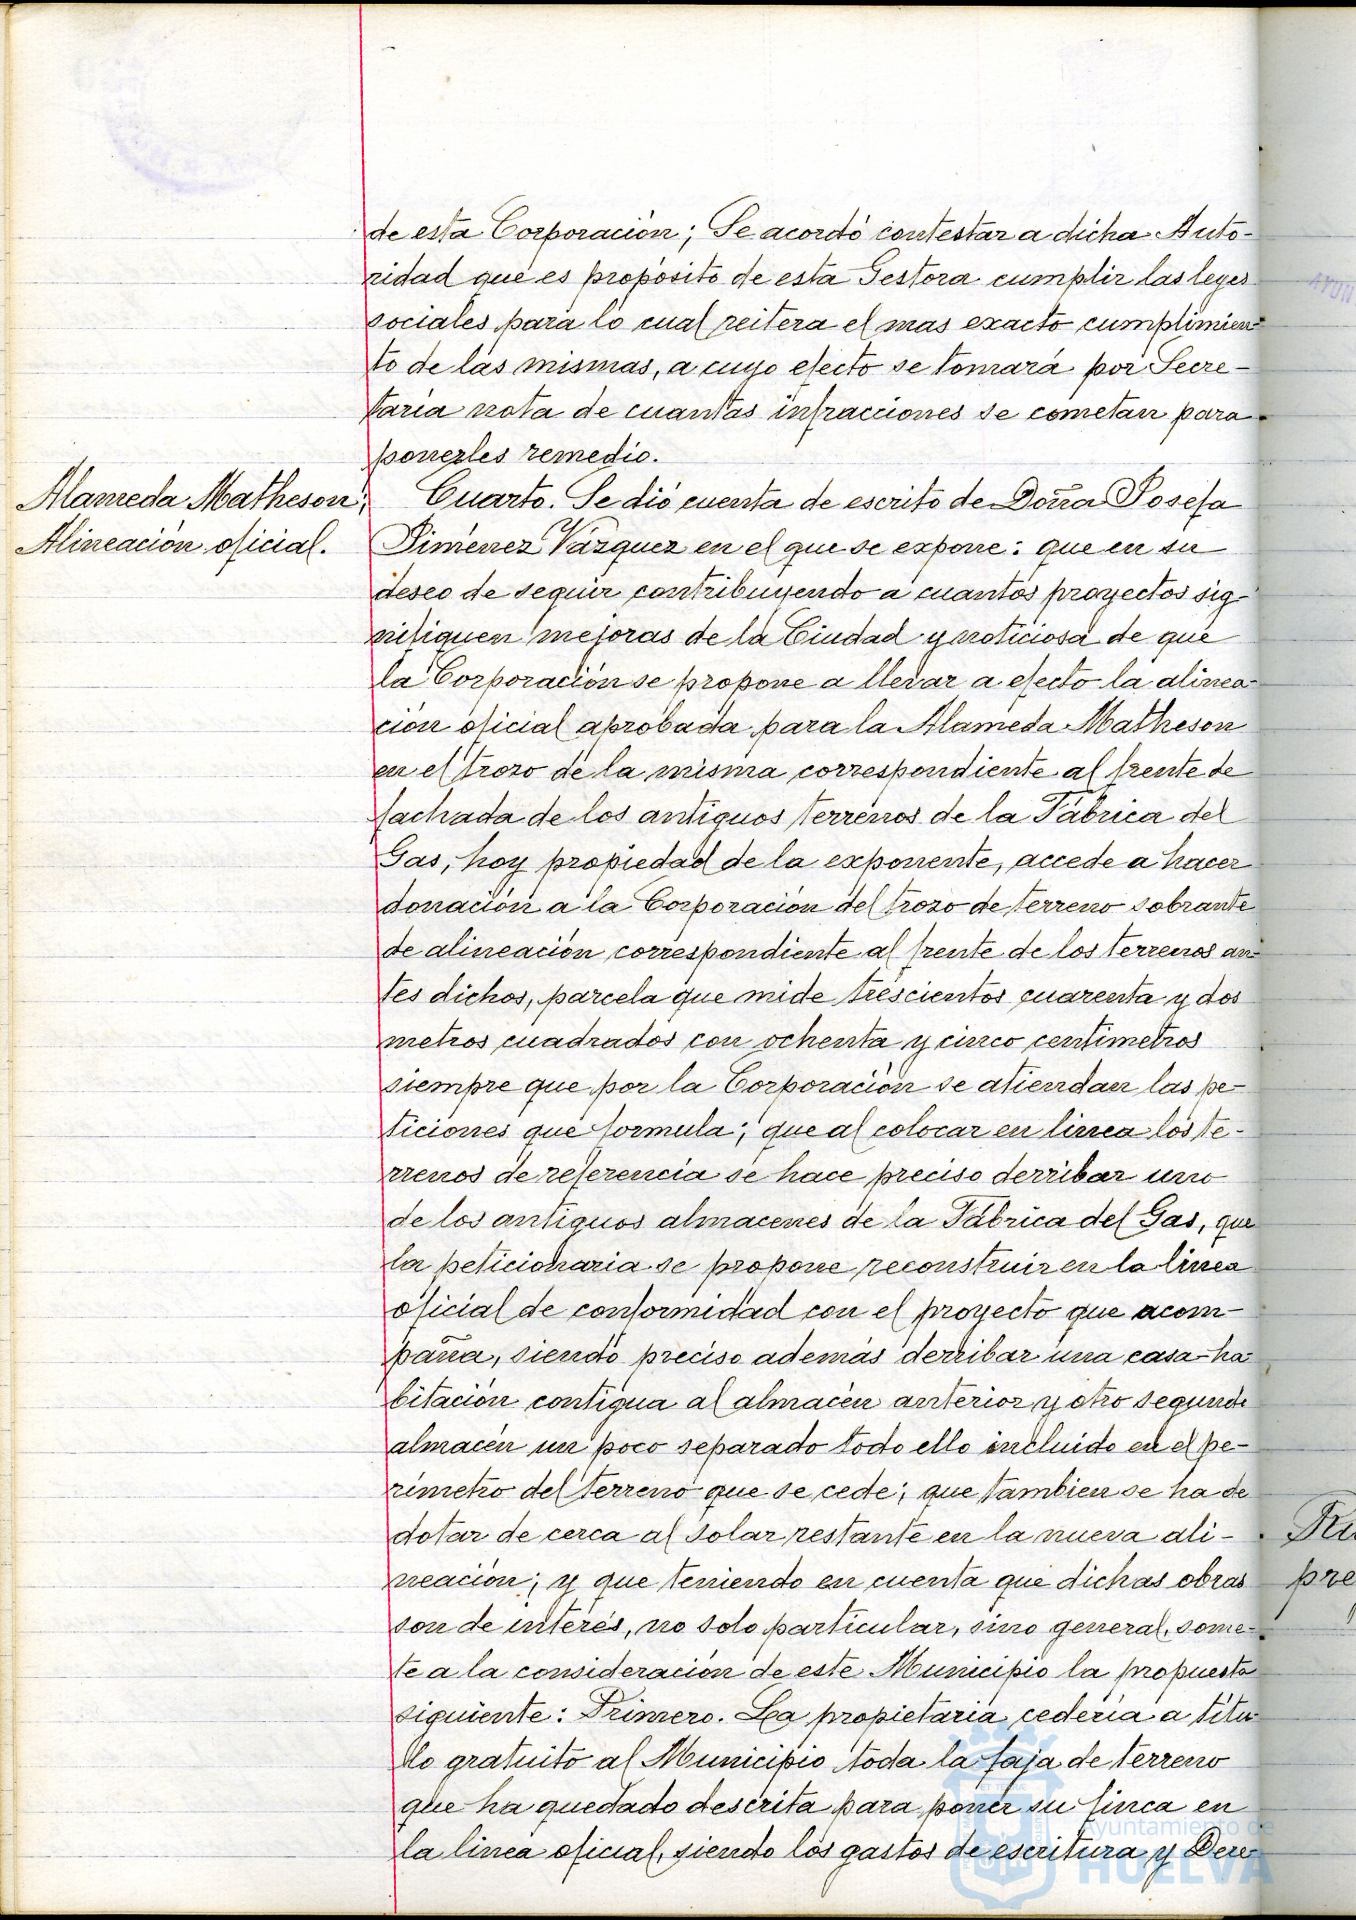 de esta Corporación; Se acordó contestar a dicha Auto-
ridad que es propósito de esta Gestora cumplir las leyes
sociales para lo cual reitera el mas exacto cumplimien-
to de las mismas, a cuyo efecto se tomará por Secre-
taría nota de cuantas infracciones se cometan para
ponerles remedio.
Alameda Matheson;
Alineación oficial.
Cuarto. Se dió cuenta de escrito de Doña Josefa
Jiménez Vázquez en el que se expone: que en su
deseo de seguir contribuyendo a cuantos proyectos sig-
nifiquen mejoras de la Ciudad y noticiosa de que
la Corporación se propone a llevar a efecto la alinea-
ción oficial aprobada para la Alameda Matheson
en el trozo de la misma correspondiente al frente de
fachada de los antiguos terrenos de la Fábrica del
Gas, hoy propiedad de la exponente, accede a hacer
donación a la Corporación del trozo de terreno sobrante
de alineación correspondiente al frente de los terrenos an-
tes dichos, parcela que mide trescientos cuarenta y dos
metros cuadrados con ochenta y cinco centimetros
siempre que por la Corporación se atiendan las pe-
ticiones que formula; que al colocar en linea los te-
rrenos de referencia se hace preciso derribar uno
de los antiguos almacenes de la Fábrica del Gas, que
la peticionaria se propone reconstruir en la linea
oficial de conformidad con el proyecto que acom-
paña, siendo preciso además derribar una casa-ha-
bitación contigua al almacén anterior y otro segundo
almacén un poco separado todo ello incluido en el pe-
rímetro del terreno que se cede; que tambien se ha de
dotar de cerca al solar restante en la nueva ali-
neación; y que teniendo en cuenta que dichas obras
son de interés, no solo particular, sino general, some-
te a la consideración de este Municipio la propuesta
siguiente: Primero. La propietaria cedería a títu-
lo gratuito al Municipio toda la faja de terreno
que ha quedado descrita para poner su finca en
la linea oficial, siendo los gastos de escritura y Dere-
Ayuntamiento de
HUELVA
AYUN
pre